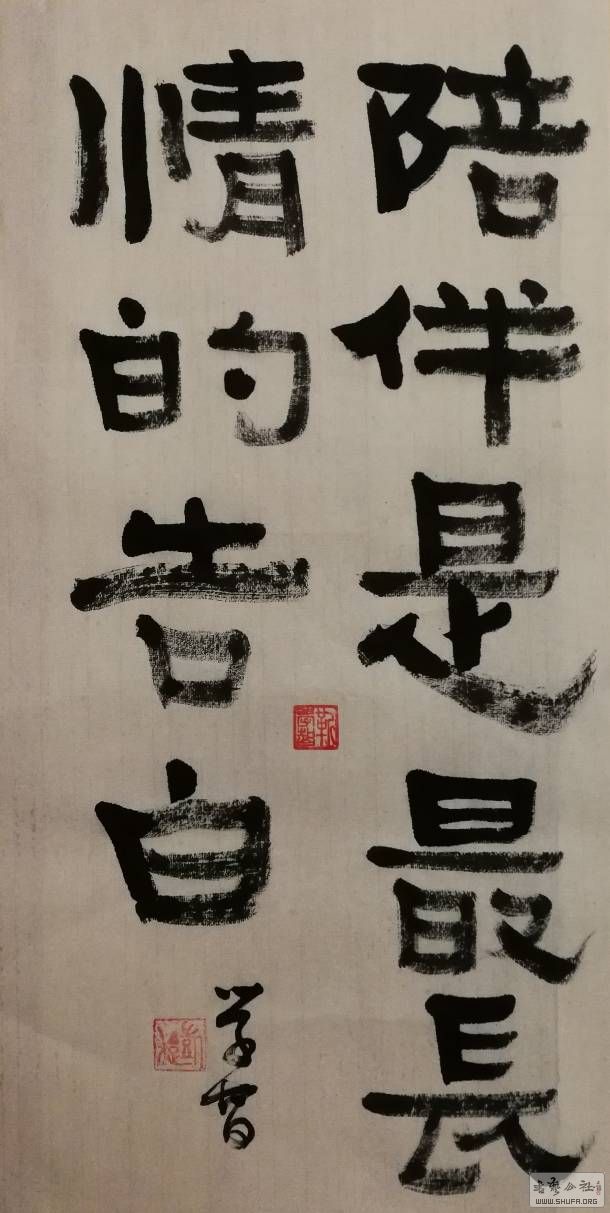 陪伴是最長
情的告白
WWW.SHUFA.ORG